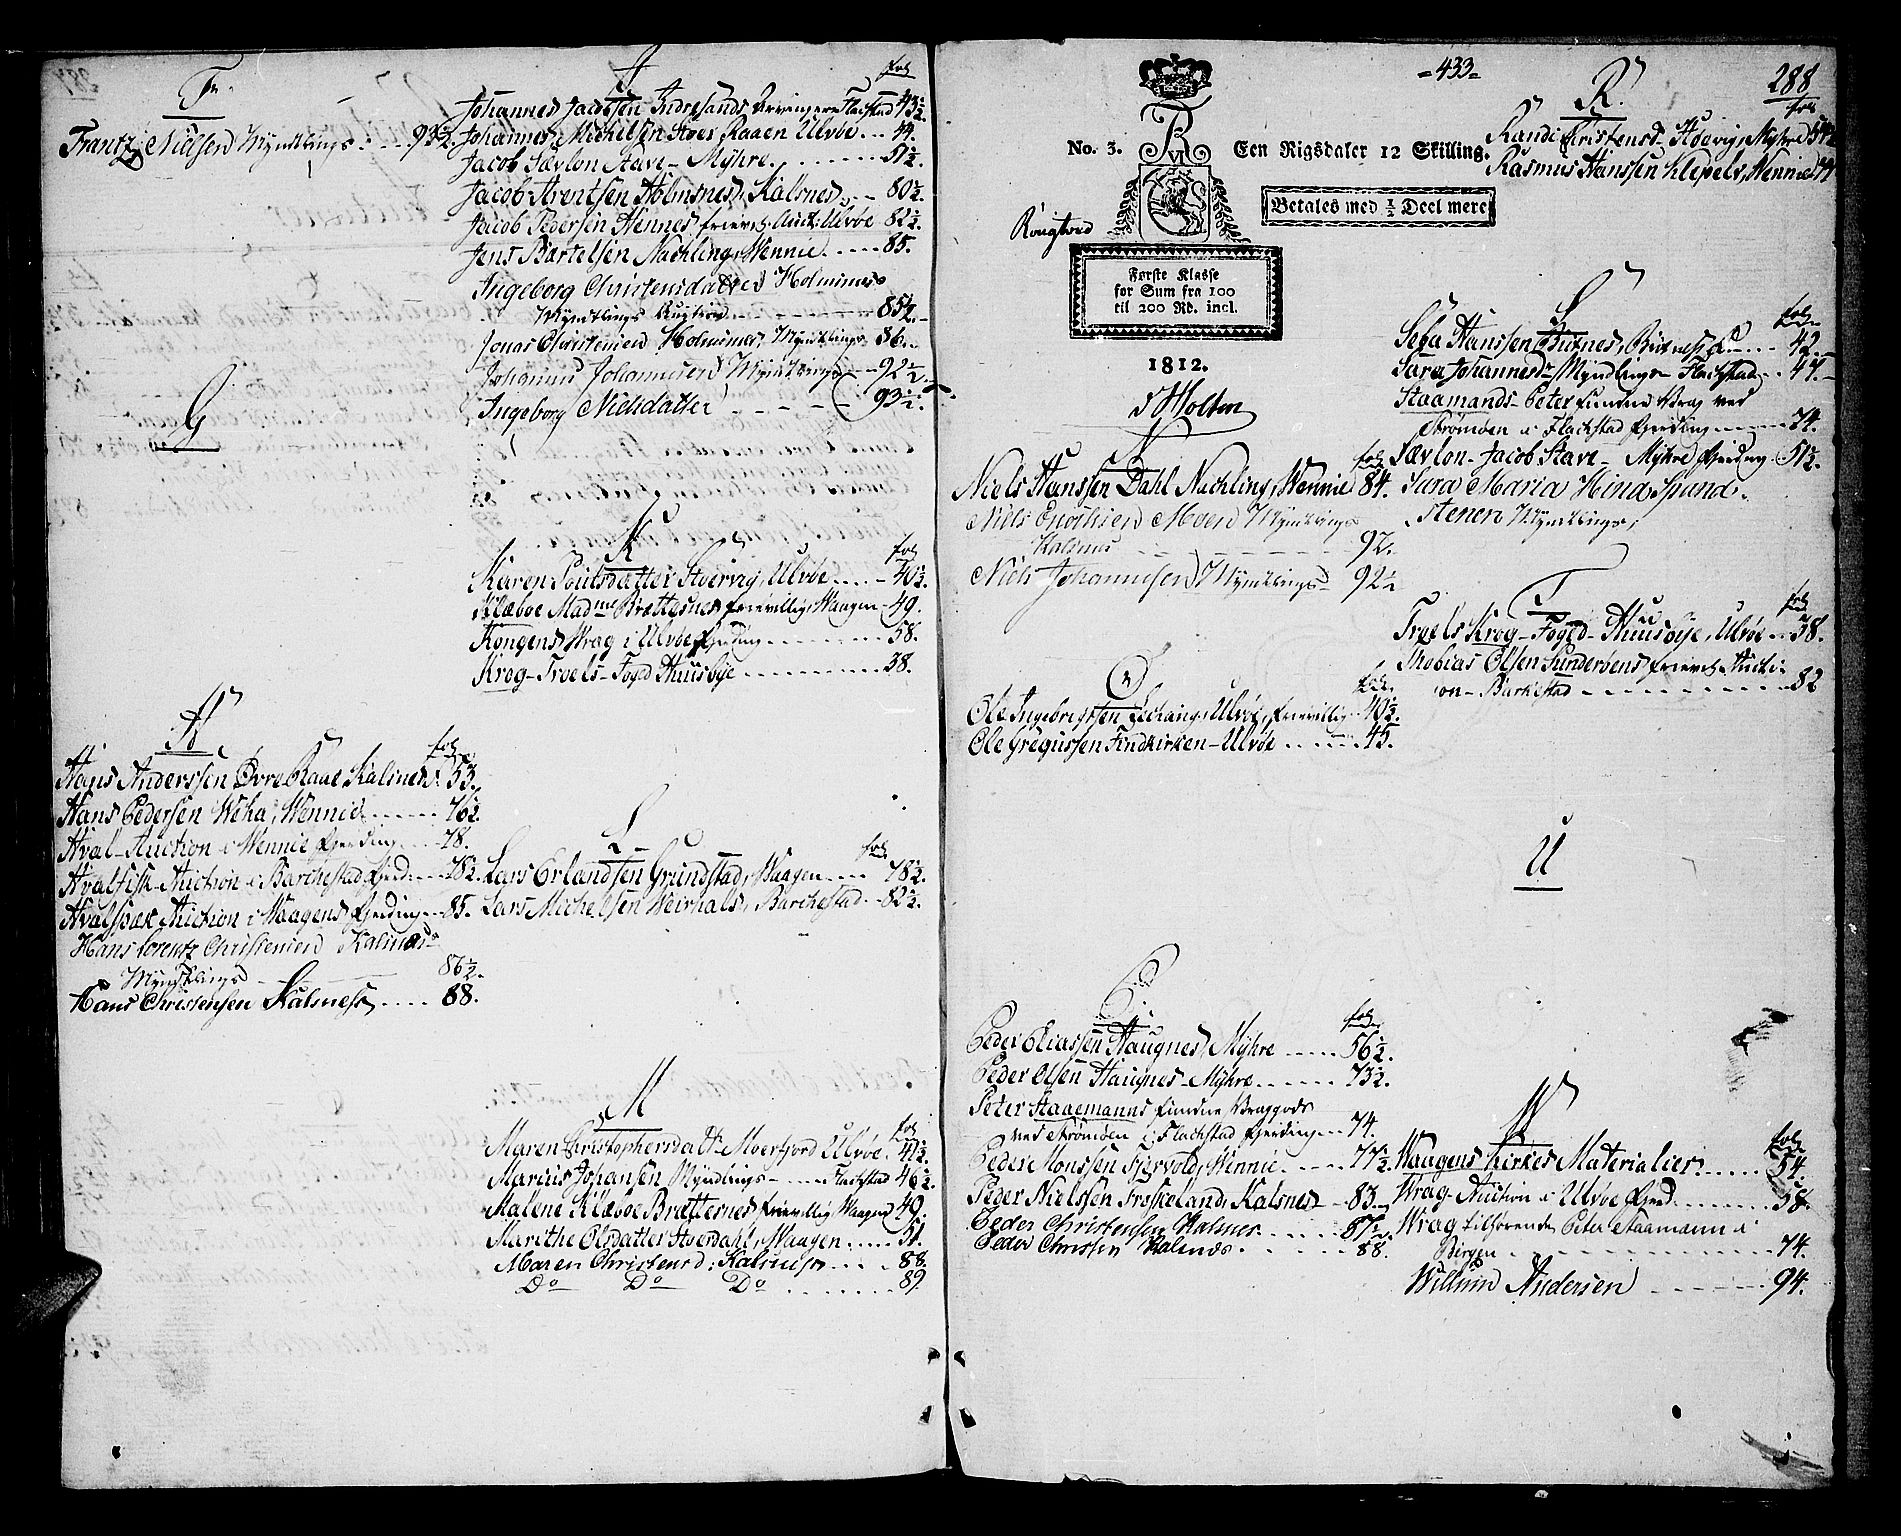 F.
Frantz Nielsen Myndlings 93½.
G
H
fol
Hans Anderssen Øvre Raae Kalsnes 53.
Hans Pedersen Weha, Wennie 76½.
Hval-Auction i Wennie fjerding 78.
Hvalfisk-Auction i Barchestad fjerd: 78½.
Hvalspæk Auction i Waagens fjerding 85.
Hans Lorentz Christensen Kalsnes
Myndlings 86½.
Hans Christensen Kalsnes 88.
fol
Johannes Jacobsen Indresands Arvingere Flackstad 43½
Johannes Michelsen Store Raaen Ulvøe 44.
Jacob Sævlon Stave - Myhre 51½.
Jacob Arentsen Holmsnes, Kalsnes 80½.
Jacob Pedersen Hennes frievil. Auct: Ulvøe 82½.
Jens Bartelsen Nachling, Wennie 85.
Ingeborg Christensdatter Holmsnes
Myndlings Auction 85½.
Jonas Christensen Holmsnes, Myndlings 86.
Johannes Johannesen Myndlings 92½.
Ingeborg Nielsdatter 93½.
K
fol
Karen Poulsdatter Stoervig, Ulvøe 40½.
Klæboe Madme Brættesnes frievillig, Waagen 49.
Kongens Wrag i Ulvøe fjerding 58.
Krog-Troels-Foged Huusbye 38.
L
fol
Lars Erlandsen Grundstad, Waagen 78½.
Lars Michelsen Weirhals, Barchestad 82½.
M
fol
Maren Christophersdatt: Moerfjord Ulvøe 41½.
Marcus Johansen Myndlings Flackstad 46½.
Malene Klæboe Brættesnes frievillig, Waagen 49.
Marithe Olsdatter Stoerdahl, Waagen 51.
Maren Christensd: Kalsnes 88.
Do Do Do 89.
=433= 288
No. 3. Een Rigsdaler 12 Skilling.
Betales med ½ Deel mere
Første Klasse
for Sum fra 100
til 200 Rd. incl.
1812.
Holten
N
fol
Niels Hanssen Dahl Nachling, Wennie 84.
Niels Enochsen Moen Myndlings
Kalsnes 92.
Niels Johannesen Myndlings 92½
O
fol
Ole Ingebrigtsen, Ulvøe, frievillig 40½.
Ole Gregussen Findkirken-Ulvøe 45.
P
fol
Peder Eliassen Haugnes, Myhre 56½.
Peder Olsen Haugnes-Myhre 73½.
Peter Staaemanns fundne Wraggods
ved Strømøen i Flackstad fjerding 74.
Peder Monssen Fjervold, Wennie 77½.
Peder Nielssen Froskeland, Kalsnes 83.
Peder Christensen Kalsnes 87½.
Peder Christen Kalsnes 88.
R
fol
Randi Christensd-, Myhre 54½
Rasmus Hanssen Klepels, Wennie 74
S
fol
Sefa Hanssen 42.
Sara Johannesdr Myndlings Flackstad 47.
Staamands-Peter fundne Wrag ved
Strømøen i Flackstad fjerding 74.
Sævlon-Jacob Stave- Myhre fjerding 51½.
Sara Maria Hind Spand.
Stenen Myndlings;
T
fol
Troels Krog-Foged-Huusbye, Ulvøe 38.
Thobias Olsen Sunderøens frievil. Aucti-
on-Barkestad 82
U
W
fol
Waagens Kirkes Materialier 54.
Wrag-Auction i Ulvøe fjerd: 58.
Wrag tilhørende Peter Staamann i
Bergen 74.
Willum Andersen 94.